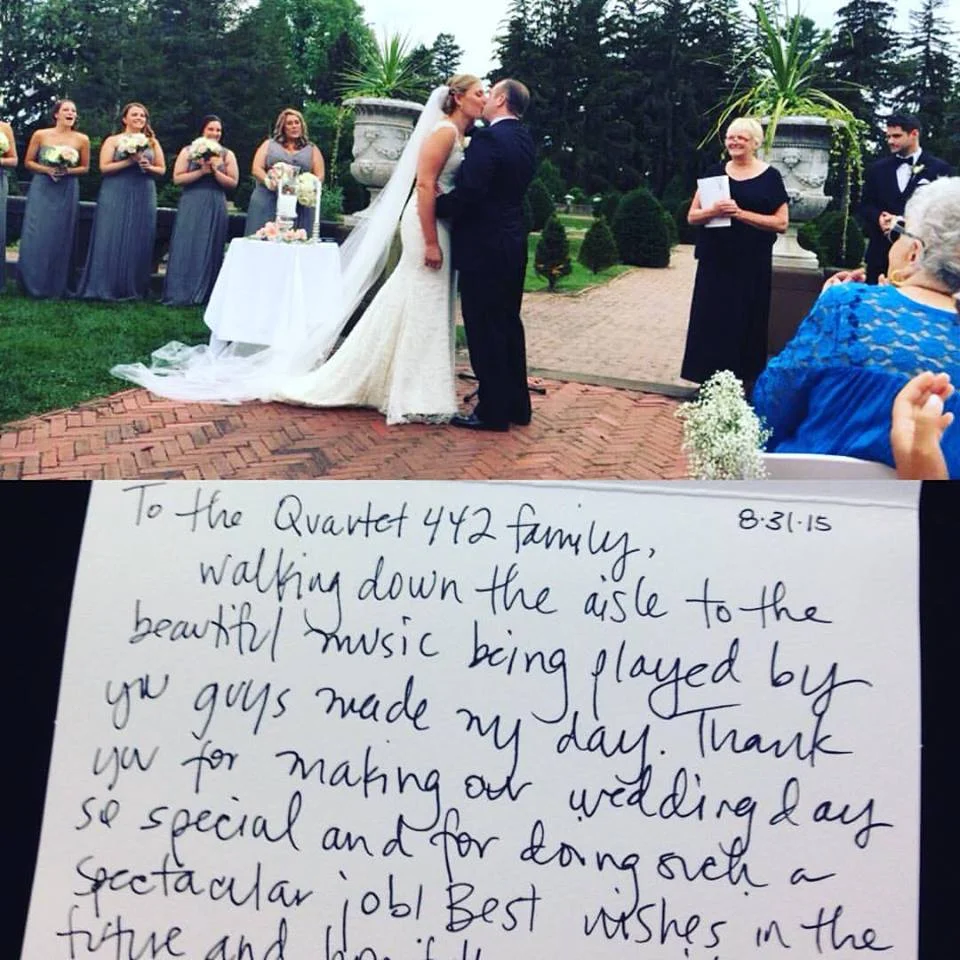 To the Quartet 442 family, 8.31.15
walking down the aisle to the
beautiful music being played by
you guys made my day. Thank
you for making our wedding day
so special and for doing such a
spectacular job! Best wishes in the
future and